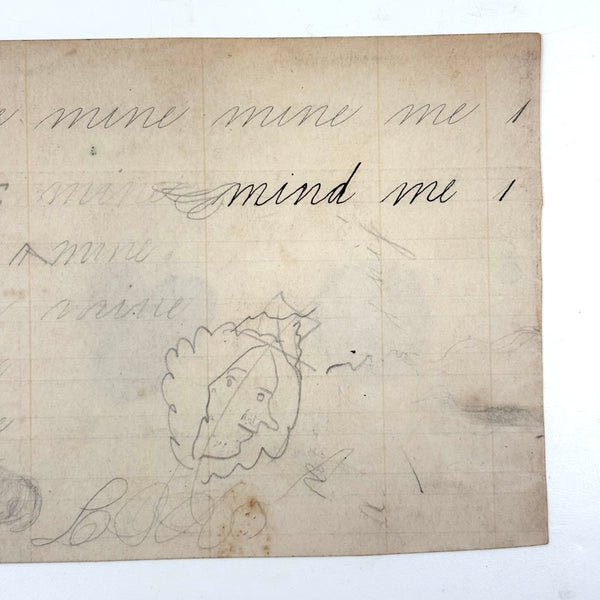 mine mine me 1
mine mind me 1
mine
mine